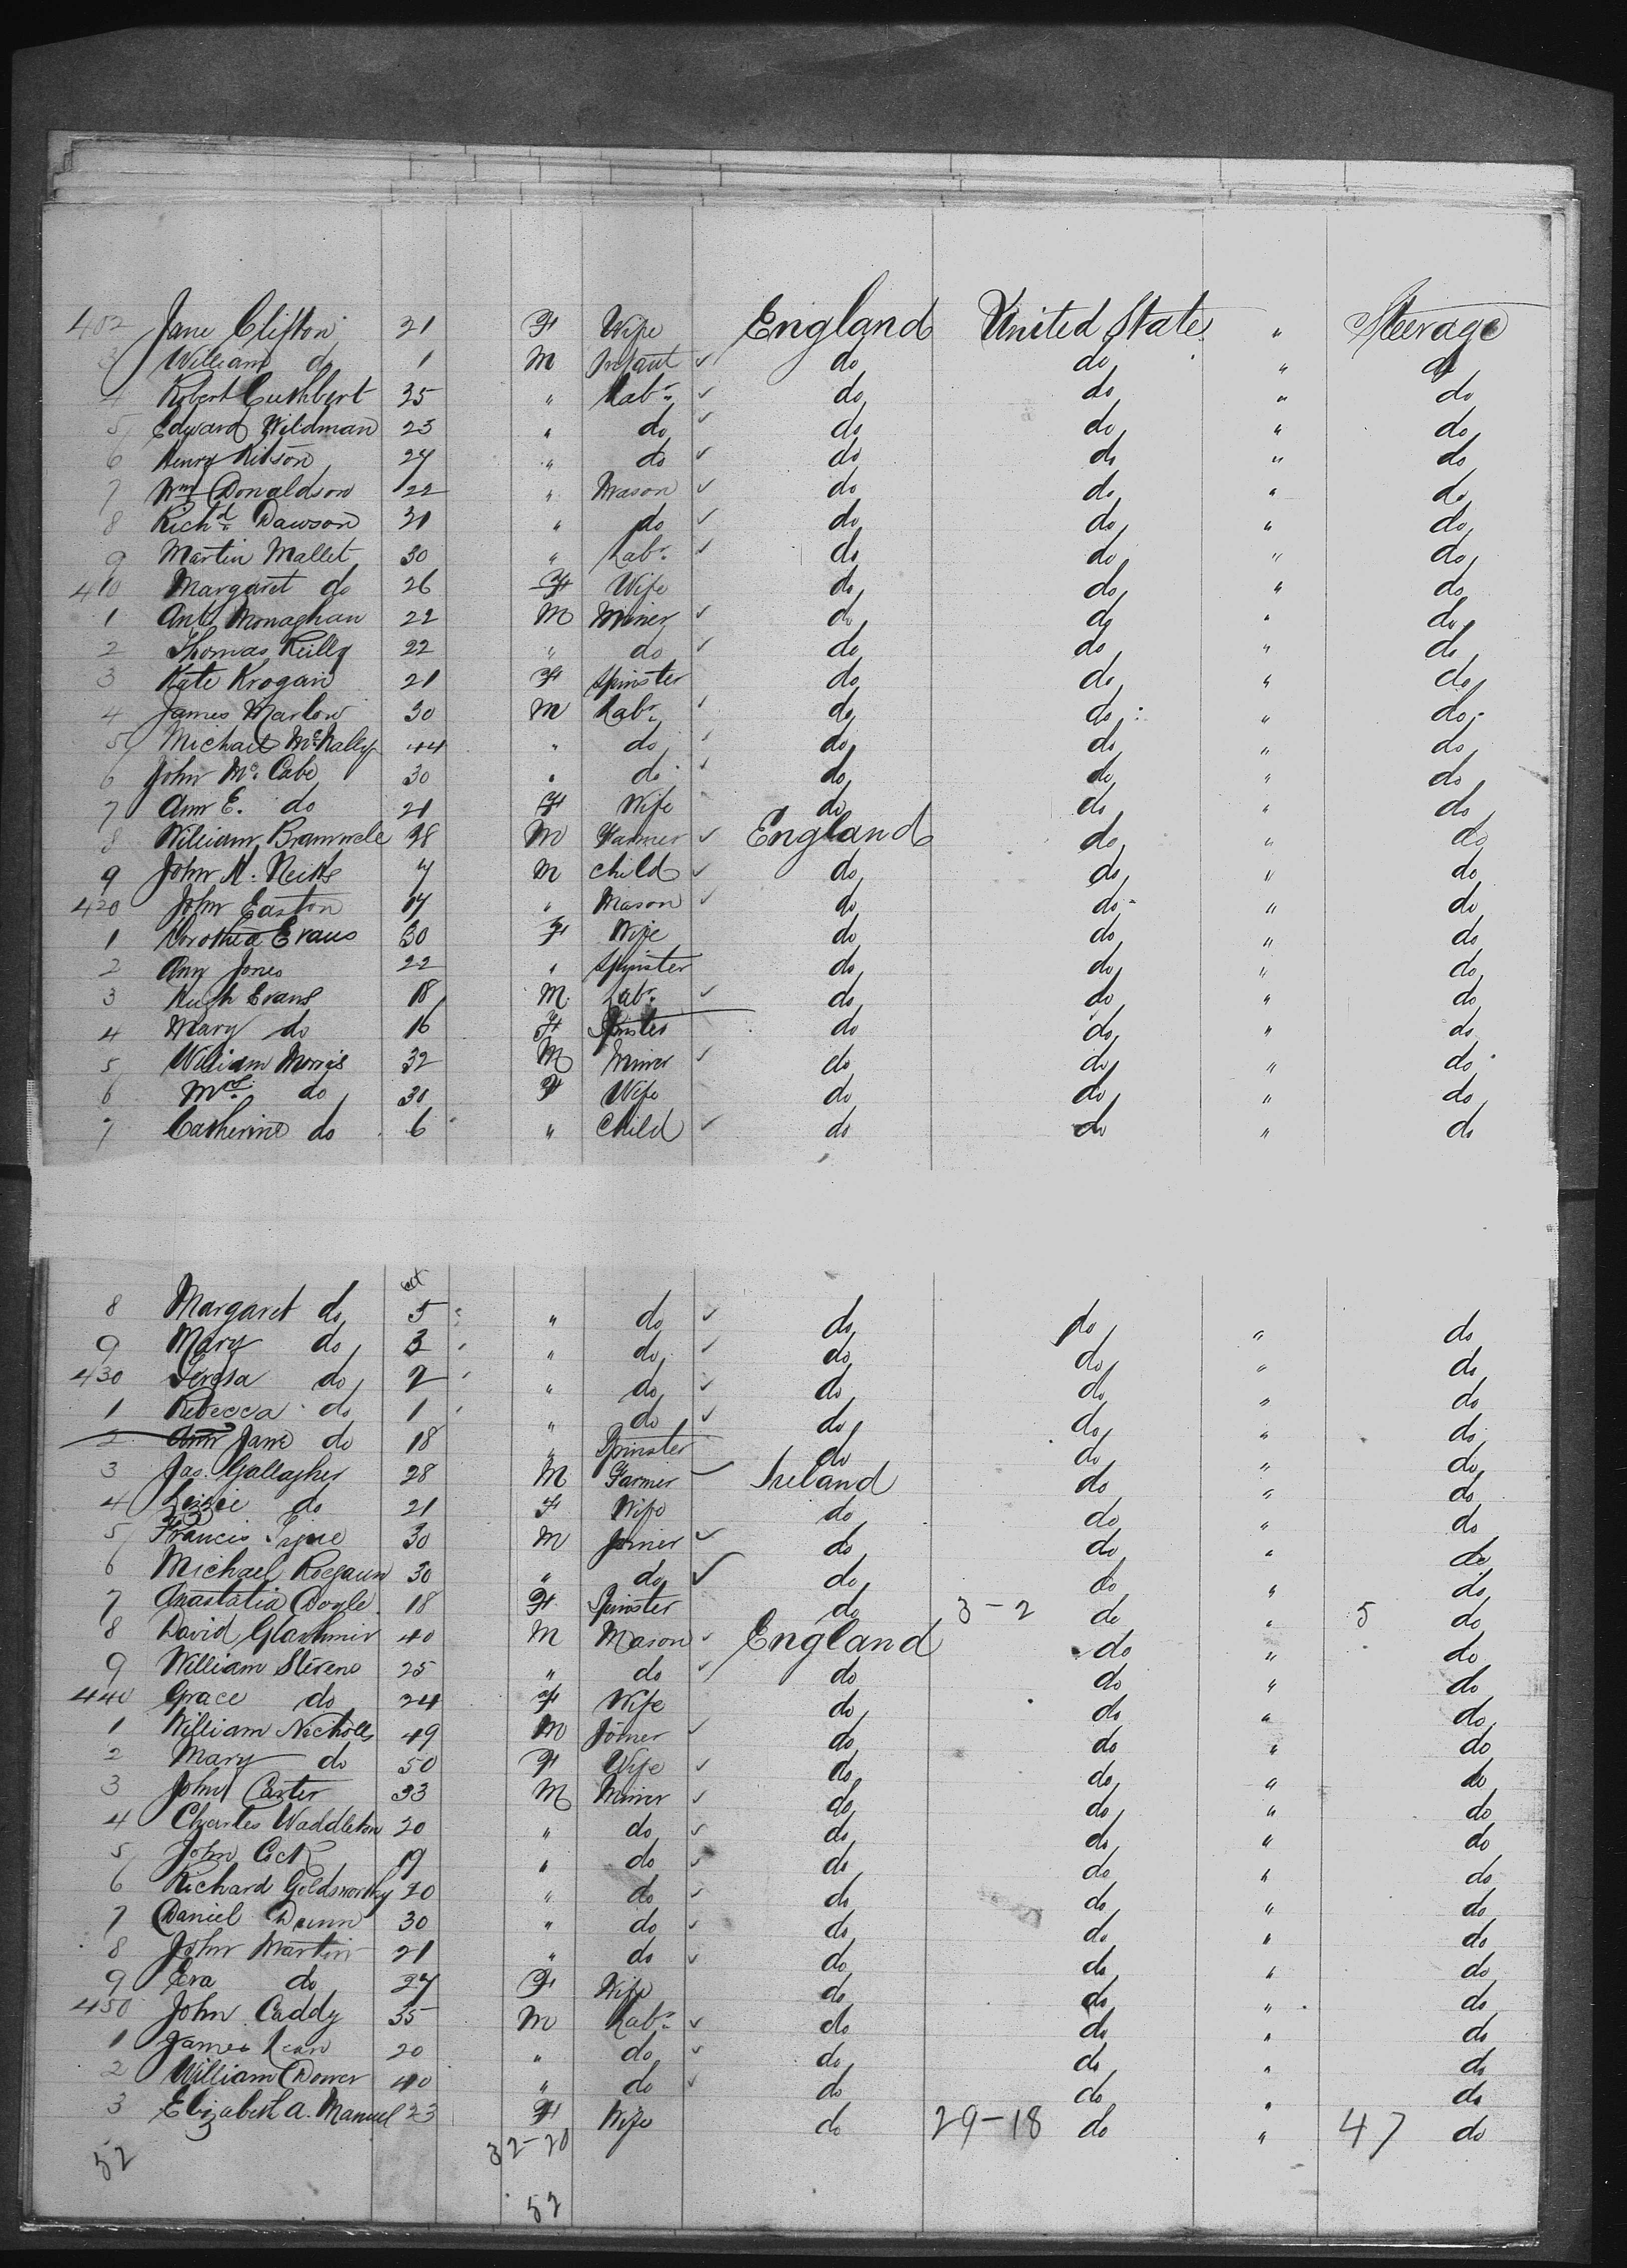 402 Jane Clifton 21 F Wife England United States " Steerage
3 William do 1 M Infant ✓ do do " do
4 Robert Cuthbert 35 " Labr ✓ do do " do
5 Edward Wildman 23 " do ✓ do do " do
6 Henry Kitson 27 " do ✓ do do " do
7 Wm Donaldson 22 " Mason ✓ do do " do
8 Richd Dawson 31 " do ✓ do do " do
9 Martin Mallet 30 " Labr ✓ do do " do
410 Margaret do 26 F Wife do do " do
1 Ant Monaghan 22 M Miner ✓ do do " do
2 Thomas Reilly 22 " do ✓ do do " do
3 Kate Krogan 21 F Spinster do do " do
4 James Marlow 30 M Labr ✓ do do " do
5 Michael McNally 44 " do ✓ do do " do
6 John McCabe 30 " do ✓ do do " do
7 Ann E. do 21 F Wife do do " do
8 William Bramwell 28 M Farmer ✓ England do " do
9 John H. 7 M Child ✓ do do " do
420 John Easton 17 " Mason ✓ do do " do
1 Dorothea Evans 30 F Wife do do " do
2 Ann Jones 22 " Spinster do do " do
3 Hugh Evans 18 M Labr ✓ do do " do
4 Mary do 16 F Spinster do do " do
5 William Morris 32 M Miner ✓ do do " do
6 Mrs do 30 F Wife do do " do
7 Catherine do 6 " Child ✓ do do " do
8 Margaret do 5 " do ✓ do do " do
9 Mary do 3 " do ✓ do do " do
430 Teresa do 2 " do ✓ do do " do
1 Rebecca do 1 " do ✓ do do " do
2 Ann Jane do 18 " Spinster do do " do
3 Jas. Gallagher 28 M Farmer ✓ Ireland do " do
4 Lizzie do 21 F Wife do do " do
5 Francis Tyne 30 M Joiner ✓ do do " do
6 Michael Rogaun 30 " do ✓ do do " do
7 Anastatia Doyle 18 F Spinster do 3-2 do " 5 do
8 David 40 M Mason ✓ England do " do
9 William Stevens 25 " do ✓ do do " do
440 Grace do 24 F Wife do do " do
1 William Nicholls 49 M Joiner ✓ do do " do
2 Mary do 50 F Wife ✓ do do " do
3 John Carter 33 M Miner ✓ do do " do
4 Charles Waddleton 20 " do ✓ do do " do
5 John Cock 19 " do ✓ do do " do
6 Richard Goldsworthy 20 " do ✓ do do " do
7 Daniel Dunn 30 " do ✓ do do " do
8 John Martin 21 " do ✓ do do " do
9 Eva do 27 F Wife do do " do
450 John Caddy 35 M Labr ✓ do do " do
1 James Kean 20 " do ✓ do do " do
2 William Dower 40 " do ✓ do do " do
3 Elizabeth A. Manuel 23 F Wife do 29-18 do " 47 do
52 32-20
52